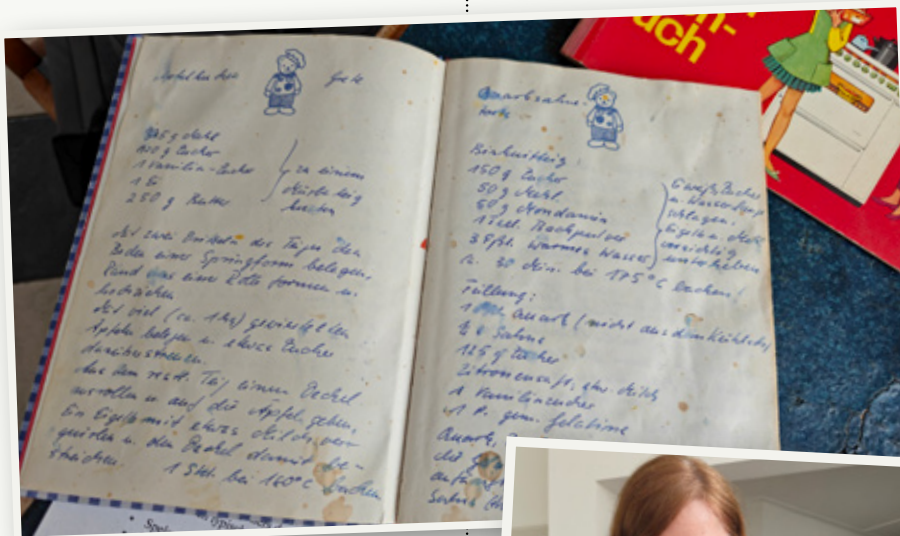 Apfelkuchen
Grete
375 g Mehl
120 g Zucker
1 Vanillin-Zucker
1 Ei
250 g Butter
zu einem
Mürbeteig
kneten
Mit zwei Dritteln des Teiges den
Boden einer Springform belegen,
Rand aus einer Rolle formen u.
hochziehen
Mit viel (ca. 1 kg) gewürfelten
Äpfeln belegen u. etwas Zucker
darüberstreuen.
Aus dem restl. Teig einen Deckel
ausrollen u. auf die Äpfel geben,
Ein Eigelb mit etwas Milch ver-
quirlen u. den Deckel damit be-
streichen
1 Std. bei 160°C backen
Quarksahne-
torte
Biskuitteig
150 g Zucker
50 g Mehl
50 g Mondamin
1 Teel. Backpulver
3 Eßl. warmes Wasser
Eiweiß, Zucker
u. Wasser
schlagen.
Eigelb u. Mehl
vorsichtig
unterheben
ca. 30 Min. bei 175°C backen!
Füllung:
Quark (nicht aus dem Kühlschr.)
Sahne
125 g Zucker
Zitronensaft, etw. Milch
1 Vanillinzucker
1 P. gem. Gelatine
Quark,
die
Sahne
uch